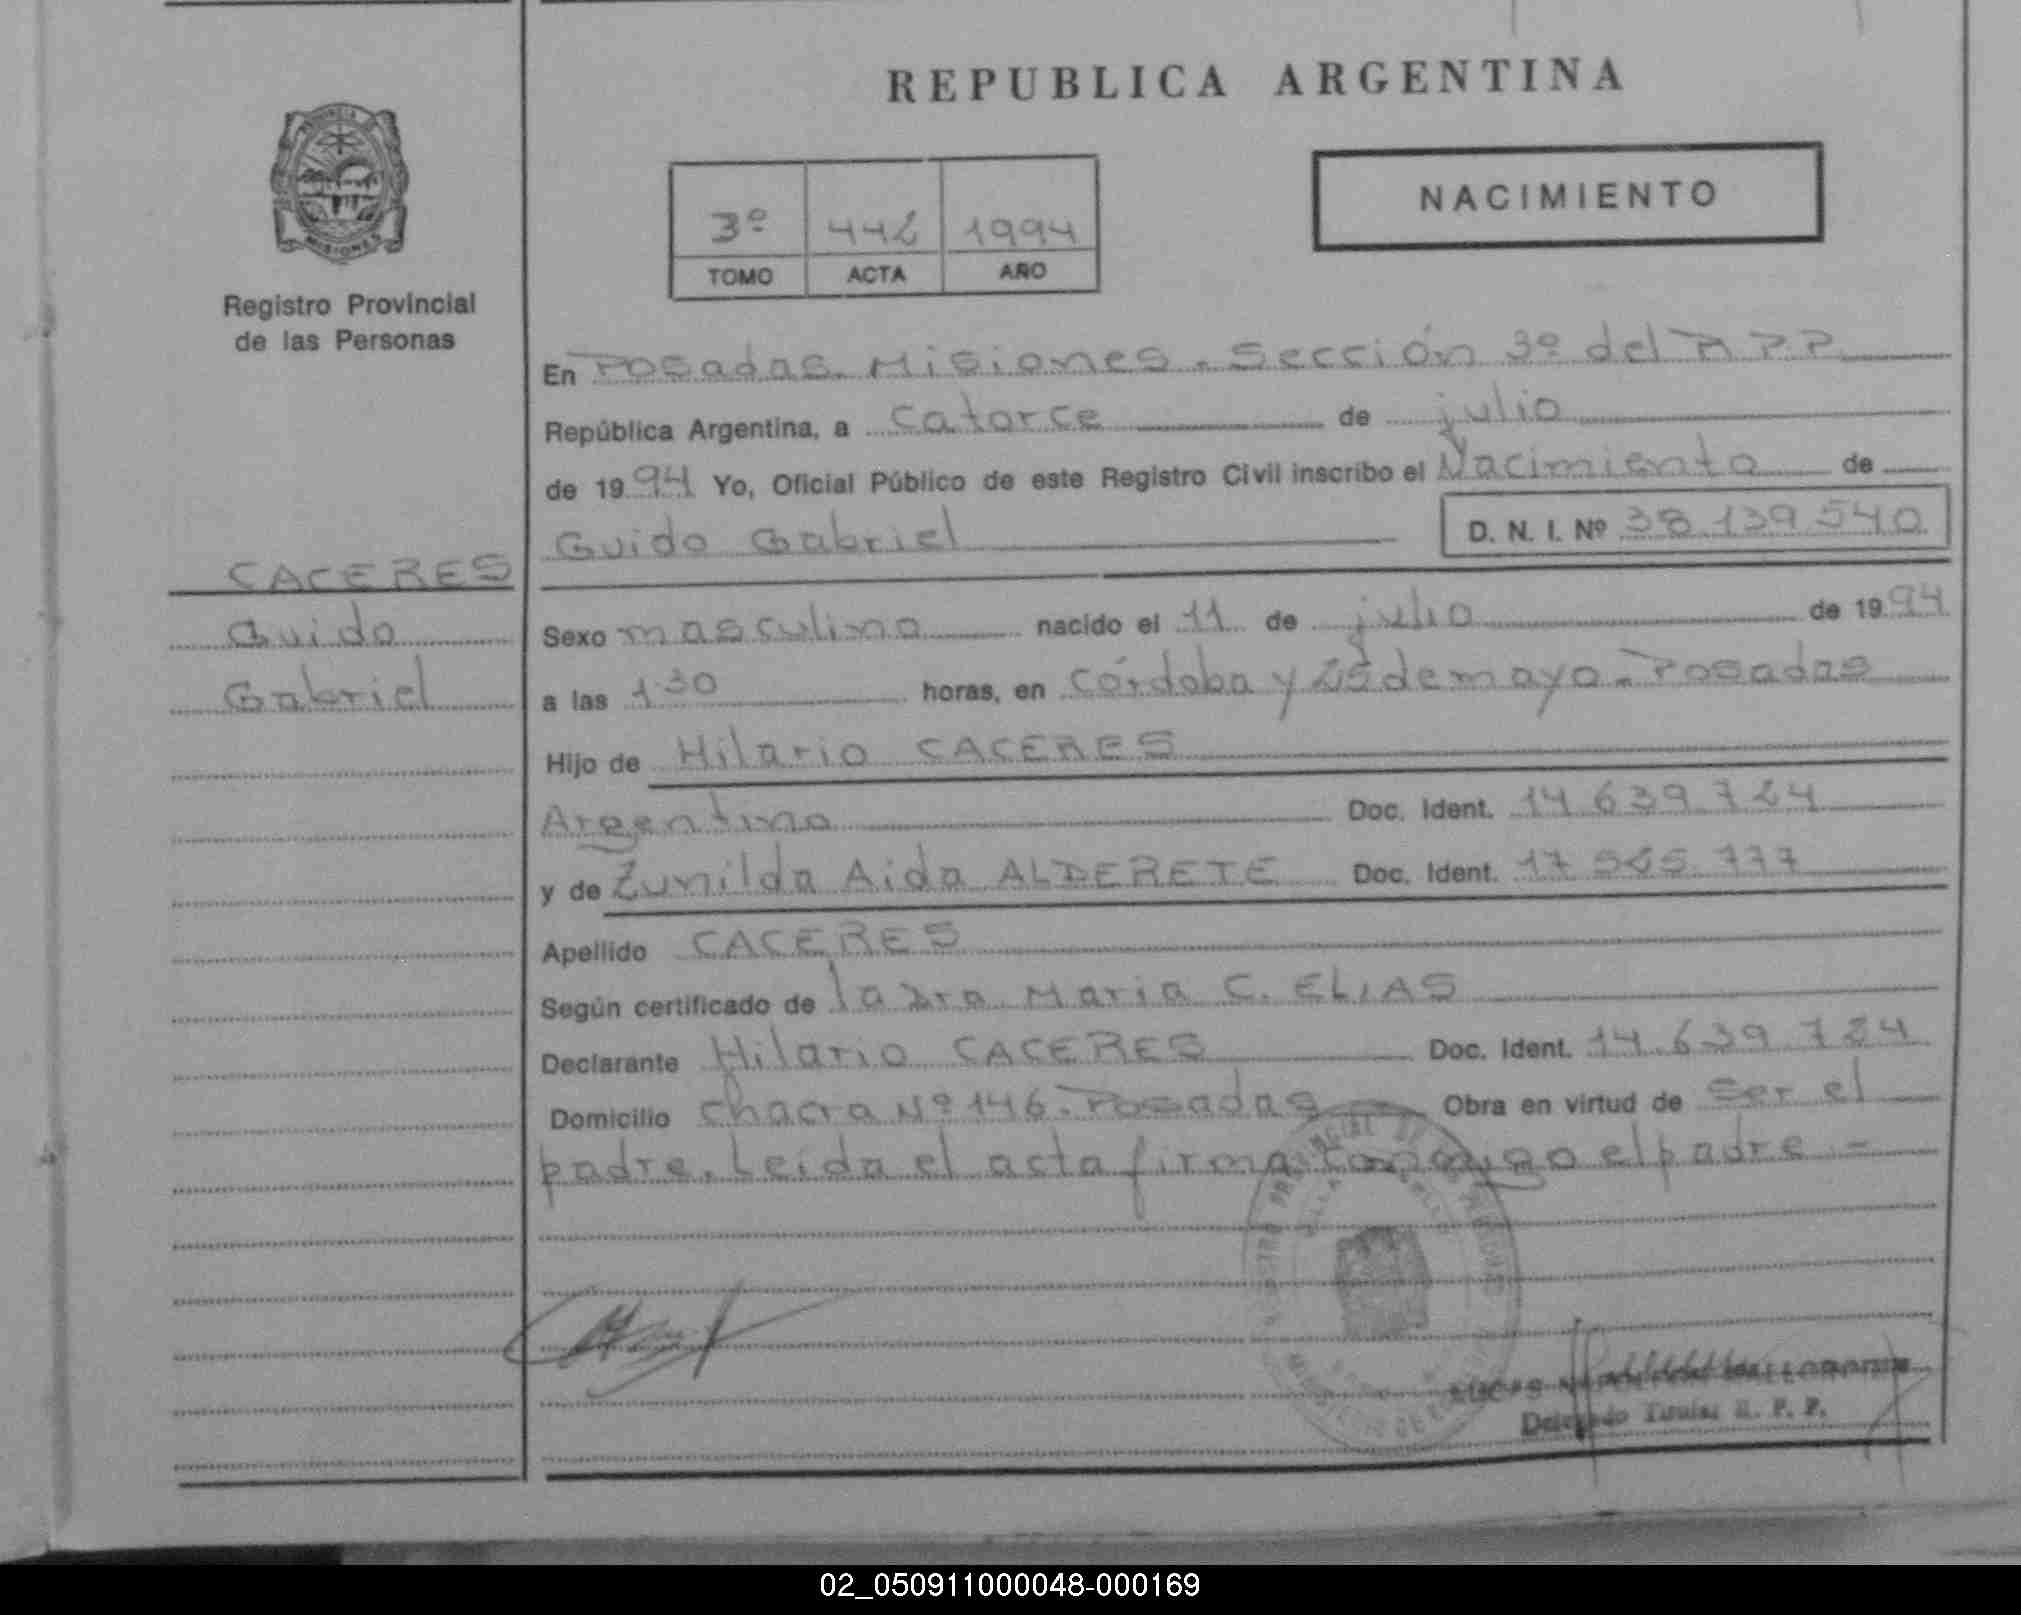 REPUBLICA ARGENTINA
NACIMIENTO
PROVINCIA DE
MISIONES
Registro Provincial
de las Personas
3º 442 1994
TOMO ACTA AÑO
En Posadas. Misiones. Sección 3º del R.P.P.
República Argentina, a catorce de julio
de 1994 Yo, Oficial Público de este Registro Civil inscribo el Nacimiento de
Guido Gabriel D. N. I. Nº 38.139.540
CACERES
Guido
Gabriel
Sexo masculino nacido el 11 de julio de 1994
a las 1.30 horas, en Córdoba y 25 de mayo. Posadas
Hijo de Hilario CACERES
Argentino Doc. Ident. 14.639.724
y de Zunilda Aida ALDERETE Doc. Ident. 17.565.777
Apellido CACERES
Según certificado de la Dra Maria C. ELIAS
Declarante Hilario CACERES Doc. Ident. 14.639.724
Domicilio chacra Nº 146. Posadas Obra en virtud de ser el
padre. Leída el acta firma conmigo el padre.-
Delegado Titular R. P. P.
02_050911000048-000169